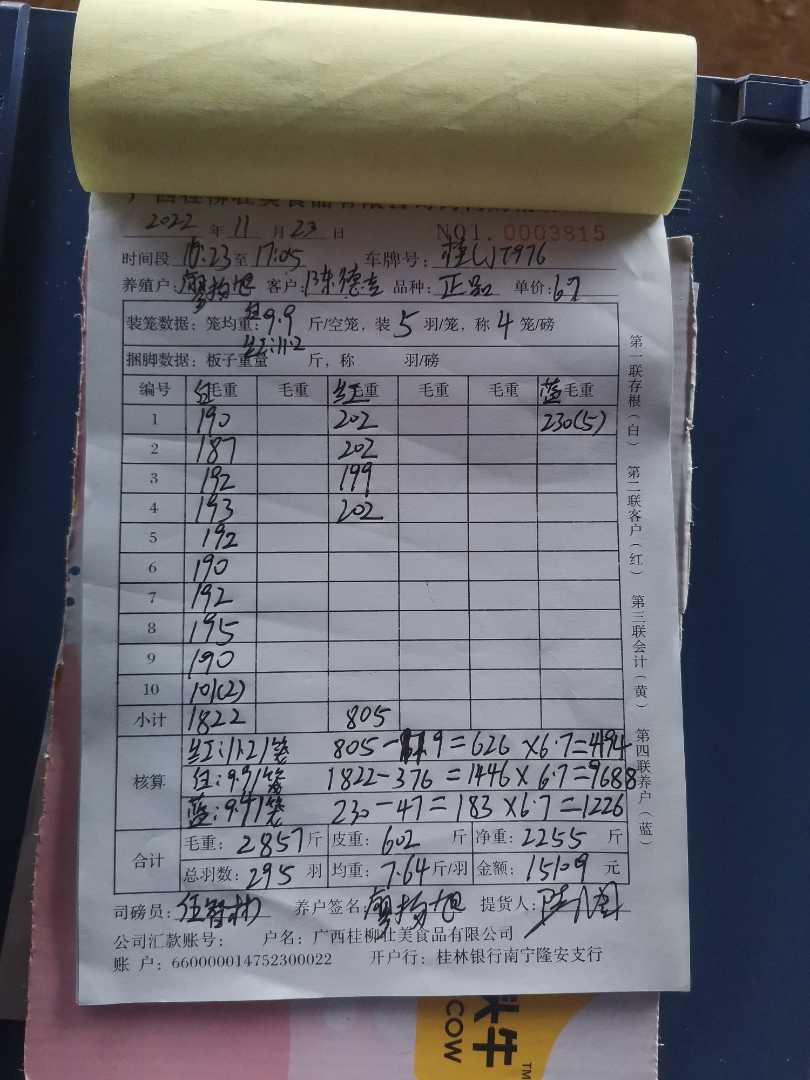 2022 年 11 月 23 日 NO1. 0003815
时间段 16:23 至 17:05 车牌号: 桂CJT976
养殖户: 廖扬旭 客户: 陈德志 品种: 正品 单价: 6.7
装笼数据: 笼均重: 红 9.9 斤/空笼, 装 5 羽/笼, 称 4 笼/磅
兰红:11.2
捆脚数据: 板子重量 斤, 称 羽/磅
编号 红 毛重 毛重 兰红 毛重 毛重 毛重 蓝 毛重
1 190 202 230(5)
2 187 202
3 192 199
4 193 202
5 192
6 190
7 192
8 195
9 190
10 101(2)
小计 1822 805
核算
兰红:11.2/笼 805- 9=626 ×6.7=4194
红:9.9/笼 1822-376=1446×6.7=9688
蓝:9.4/笼 230-47=183×6.7=1226
合计
毛重: 2857 斤 皮重: 602 斤 净重: 2255 斤
总羽数: 295 羽 均重: 7.64 斤/羽 金额: 15109 元
司磅员: 伍智彬 养户签名: 廖扬旭 提货人:
公司汇款账号: 户名: 广西桂柳壮美食品有限公司
账 户: 660000014752300022 开户行: 桂林银行南宁隆安支行
第一联存根(白) 第二联客户(红) 第三联会计(黄) 第四联养户(蓝)
头牛
TM
COW